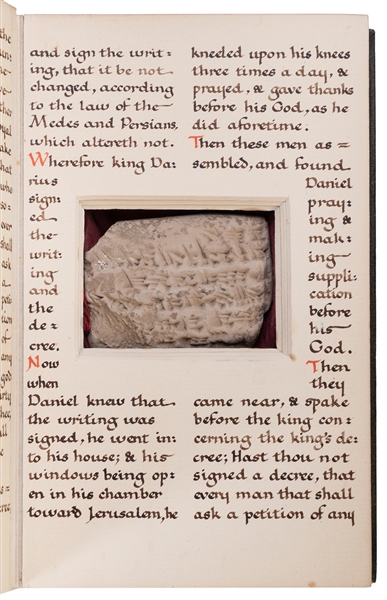 and sign the writ=
ing, that it be not
changed, according
to the law of the
Medes and Persians,
which altereth not.
Wherefore king Da=
rius
sign=
ed
the
writ=
ing
and
the
de=
cree.
Now
when
Daniel knew that
the writing was
signed, he went in=
to his house; & his
windows being op=
en in his chamber
toward Jerusalem, he
kneeled upon his knees
three times a day, &
prayed, & gave thanks
before his God, as he
did aforetime.
Then these men as=
sembled, and found
Daniel
pray=
ing &
mak=
ing
suppli=
cation
before
his
God.
Then
they
came near, & spake
before the king con=
cerning the king's de=
cree; Hast thou not
signed a decree, that
every man that shall
ask a petition of any